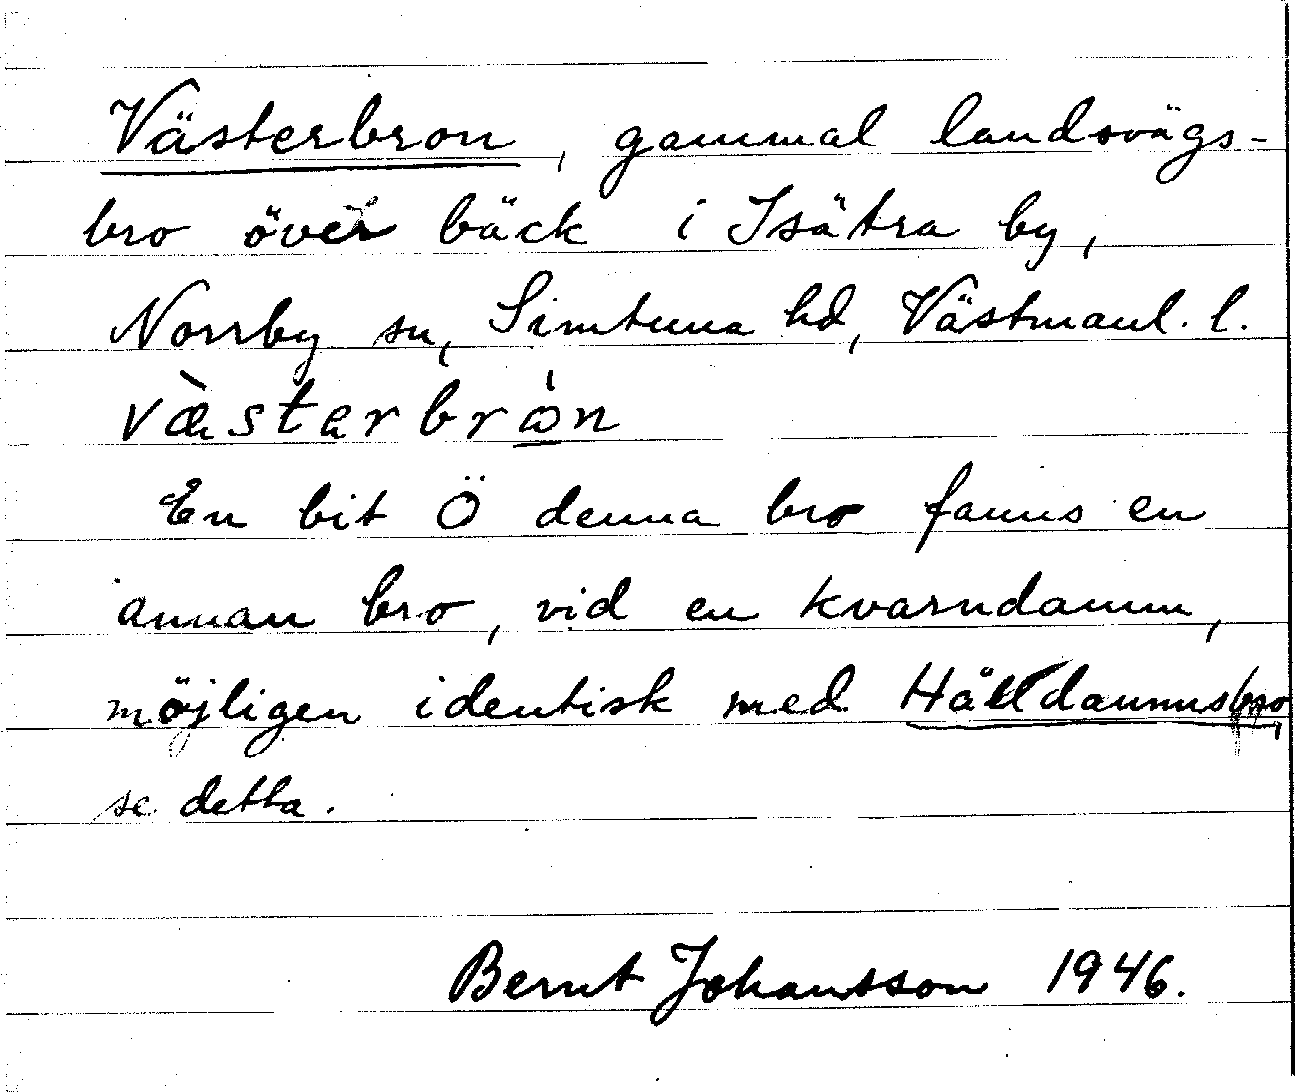 Västerbron, gammal landsvägs-
bro över bäck i Isätra by,
Norrby sn, Simtuna hd, Västmanl. l.
væ̀starbrὼn
En bit Ö denna bro fanns en
annan bro, vid en kvarndamm,
möjligen identisk med Hälldammsbro,
se detta.
Bernt Johansson 1946.